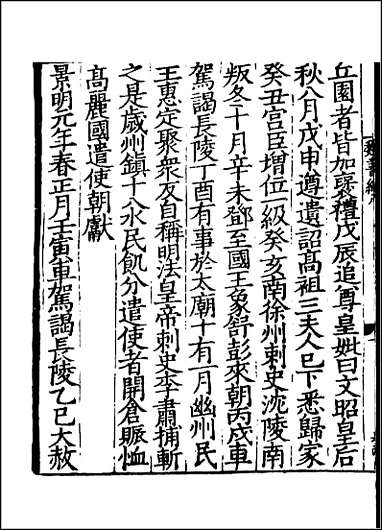 丘園者皆加褒禮戊辰追尊皇妣曰文昭皇后
秋八月戊申遵遺詔高祖三夫人已下悉歸家
癸丑宮臣增位一級癸亥南徐州刺史沈陵南
叛冬十月辛未鄧至國王象舒彭來朝丙戌車
駕謁長陵丁酉有事於太廟十有一月幽州民
王惠定聚衆反自稱明法皇帝刺史李肅捕斬
之是歲州鎮十八水民飢分遣使者開倉賑恤
高麗國遣使朝獻
景明元年春正月壬寅車駕謁長陵乙巳大赦